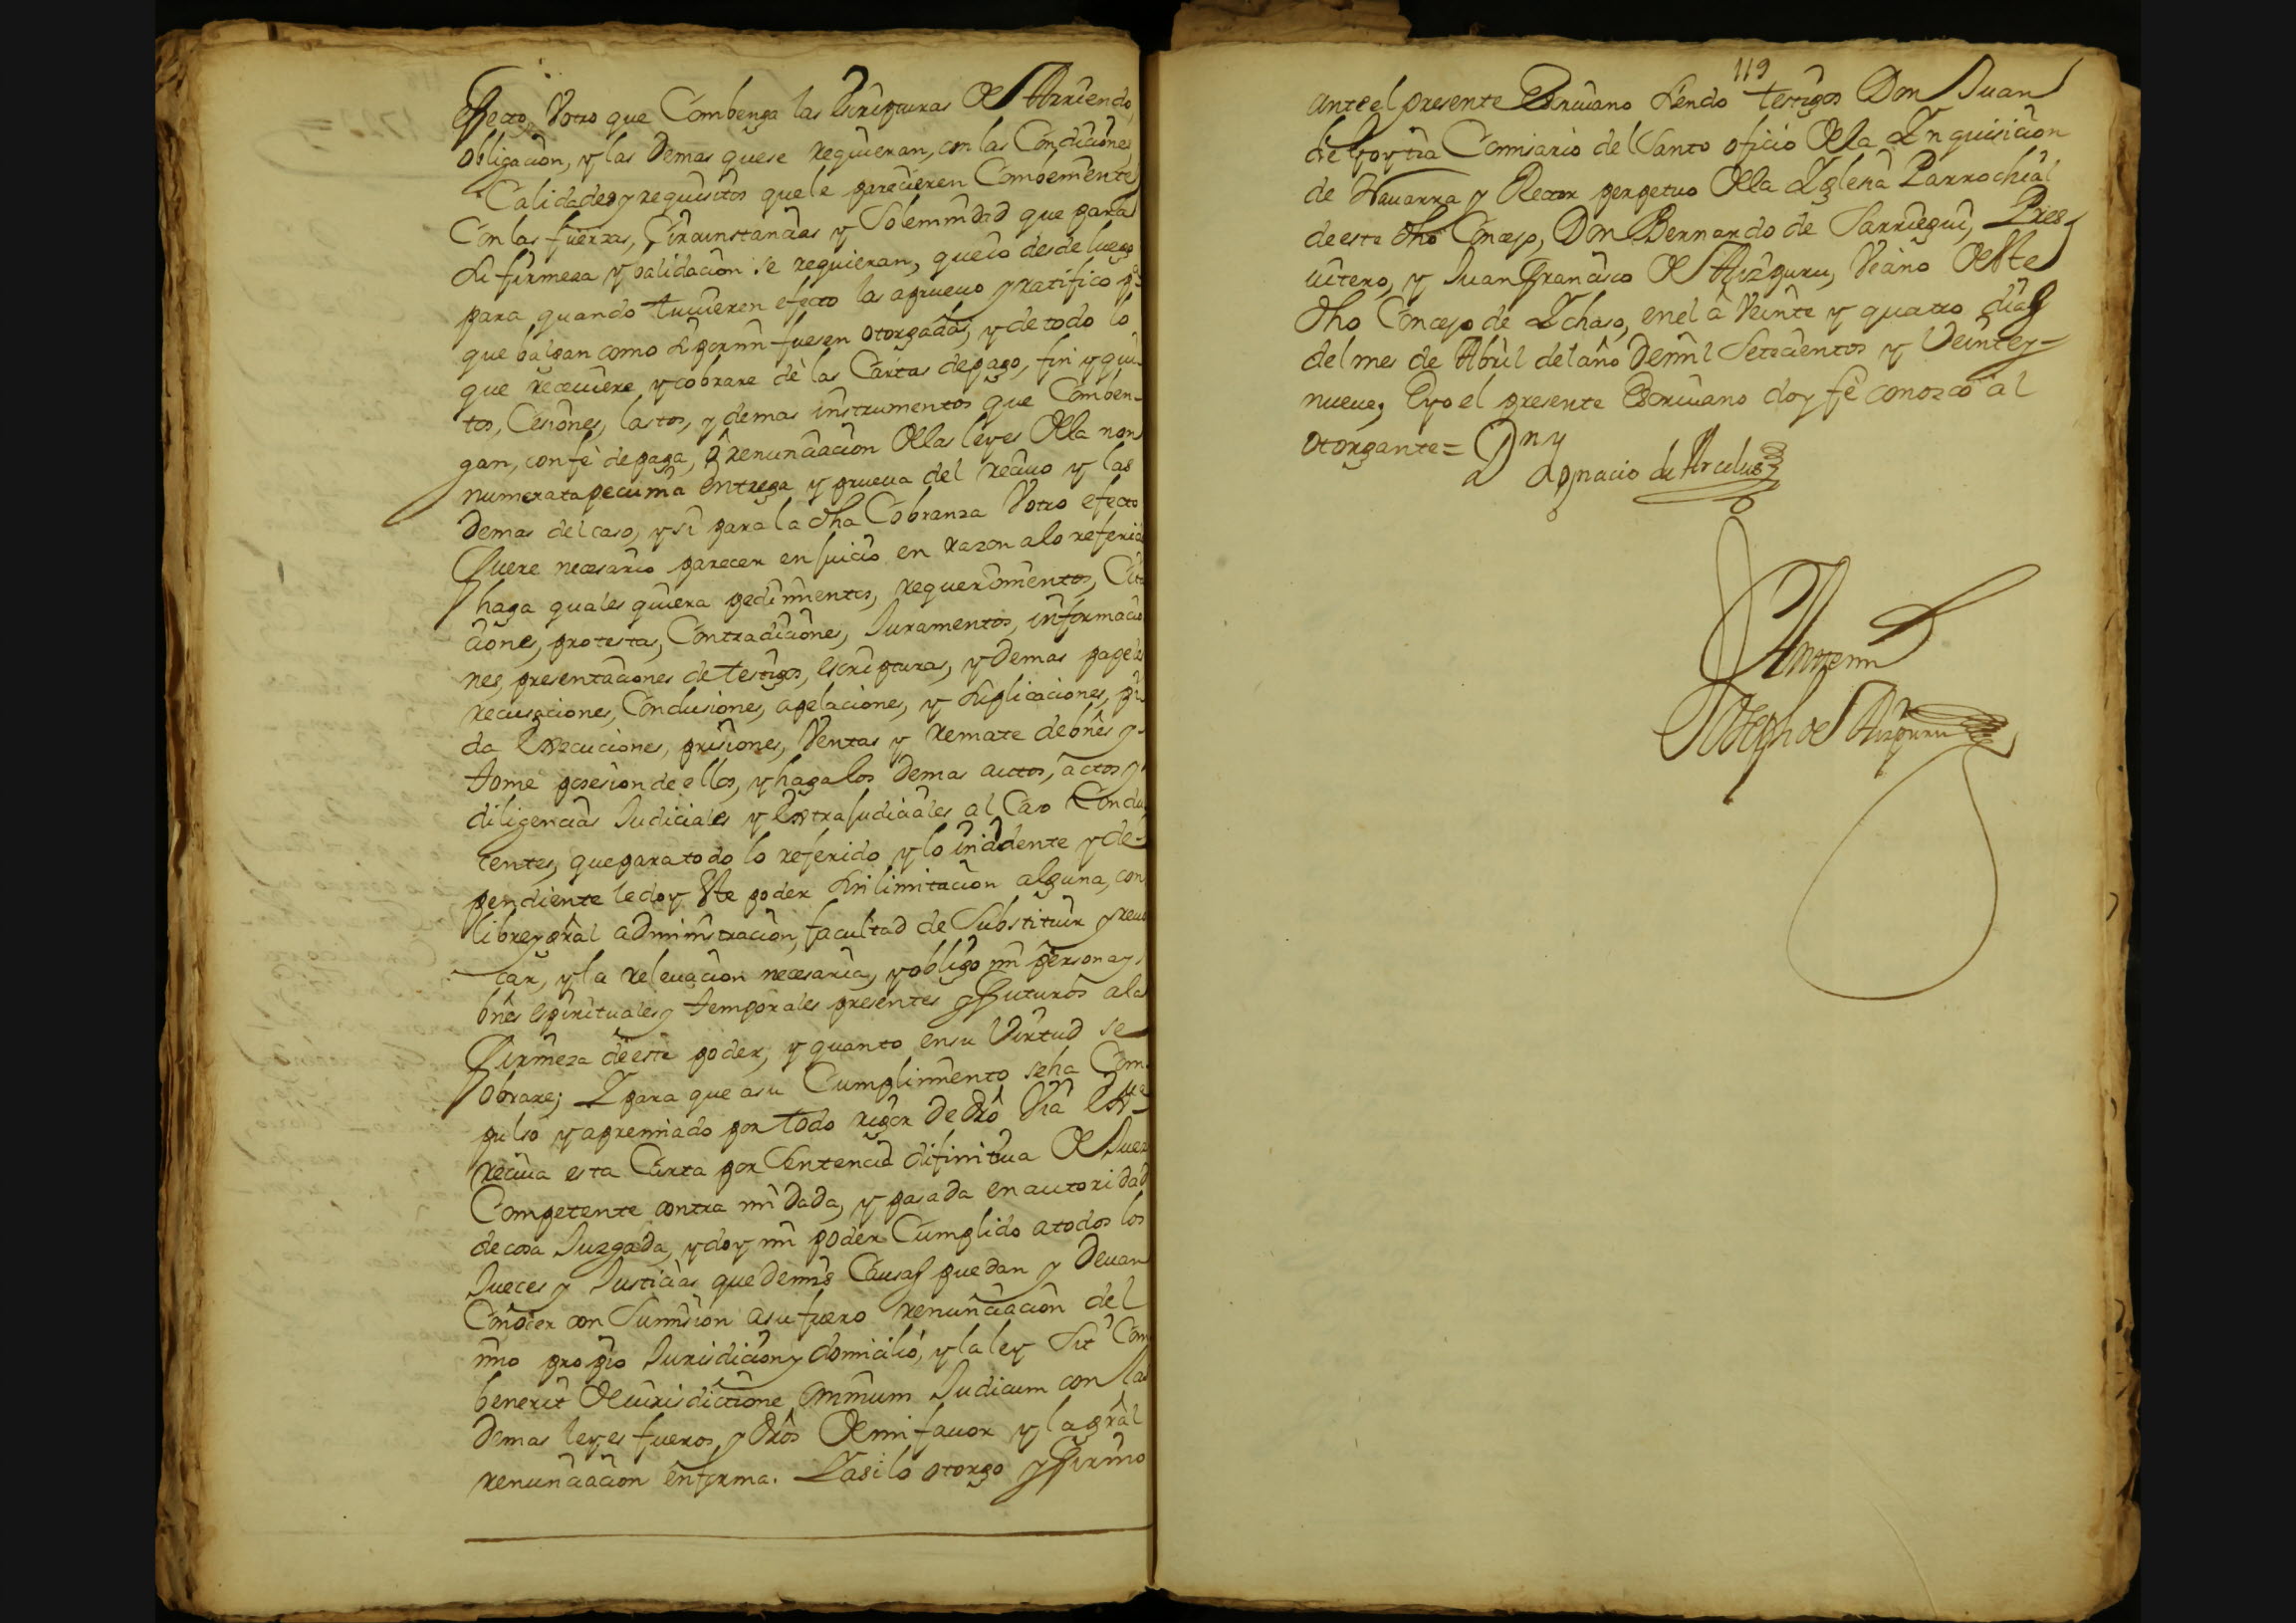 efecto, Votro que Combenga las Escripturas de Arriendo,
obligacion, y las Demas que se requieran, con las Condiciones
Calidades y requisitos que le parecieren Combenientes
Con las fuerzas, Circunstancias y Solemnidad que para
su firmeza y validacion se requieran, que io desde luego
para quando tuuieren efecto las aprueuo y ratifico pª
que balgan como si por mi fuesen otorgadas, y de todo lo
que receuiere y cobrare dè las Cartas de pago, fin y qui-
tos, Cesiones, lastos, y demas instrumentos que Comben-
gan, con fè de paga, ò renunciacion de las leyes de la non
numerata pecunia entrega y prueua del reciuo y las
Demas del caso, y si para la dha Cobranza Votro efecto
fuere necesario parecer en juicio en razon a lo referido
haga quales quiera pedimientos, requerimientos, Cita
ciones, protestas, Contradiciones, Juramentos, informacio
nes, presentaciones de testigos, escripturas, y Demas papeles
recusaciones, Conclusiones, apelaciones, y suplicaciones, pi
da Execuciones, prisiones, Ventas y remate de bñes y
tome posesion de ellos, y haga los Demas autos, actos y
diligencias Judiciales y Extrajudiciales al Caso Condu
centes, que para todo lo referido y lo incidente y de-
pendiente le doy Este poder sin limitacion alguna, con
libre y gral administracion, facultad de Substituir y reuo
car, y la releuacion necesaria, y obligo mi persona y
bñes espirituales y temporales presentes y futuros a la
firmeza de este poder, y quanto en su Virtud se
obrare; Y para que a su Cumplimiento se ha Com
pulso y apremiado por todo rigor de dro Via Exª
reciua esta Carta por Sentencia difinitiua de Juez
Competente contra mi dada, y pasada en autoridad
de cosa Juzgada, y doy mi poder Cumplido a todos los
Jueces y Justicias que de mis Causas puedan y Deuan
Conocer con Sumision a su fuero renunciacion del
mio propio Jurisdicion y domicilio, y la ley Sit Com
benerit de iurisdictione omnium Judicum con las
Demas leyes fueros, y dros de mi fauor y la gral
renunciacion en forma. Y asi lo otorgo y firmo
119
ante el presente Escriuano siendo testigos Don Juan
de Goytia Comisario del Santo oficio de la Inquisicion
de Nauarra y Rector perpetuo de la Iglesia Parrochial
de este dho Concejo, Don Bernardo de Sarriegui, Pres
uitero, y Juan Francisco de Aizpuru, Vecino de este
dho Concejo de Ichaso, en el â Veinte y quatro dias
del mes de Abril del año de mil Setecientos y Veinte y
nueue, E yo el presente Escriuano doy fè conozco al
otorgante=
Ignacio de Arcelus
Ante mi
Joseph de Aizpuru